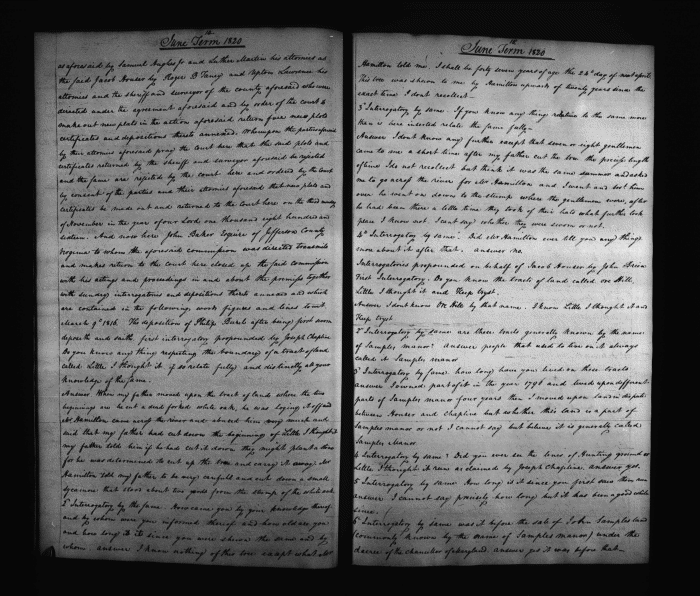 June Term 1820
as aforesaid by Samuel Hughes Jr and Luther Martin his attornies as
the said Jacob Houser by Roger B Taney and Upton Lawrence his
attornies and the sheriff and surveyor of the county aforesaid who were
directed under the agreement aforesaid and by order of the court to
make out new plats in the action aforesaid return four new plots
certificates and depositions thereto annexed. Whereupon the parties aforesaid
by their attornies aforesaid pray the court here that the said plots and
certificates returned by the sheriff and surveyor aforesaid be rejected
and the same are rejected by the court here and ordered by the court
by consent of the parties and their attornies aforesaid that new plats and
certificates be made out and returned to the court here on the third monday
of November in the year of our Lord one thousand eight hundred and
sixteen. And now here John Baker Esquire of Jefferson County
Virginia to whom the aforesaid commission was directed transmits
and makes return to the court here closed up the said commission
with his actings and proceedings in and about the premises together
with sundry interrogatories and depositions thereto annexed and which
are contained in the following words figures and lines towit
March 9th 1816. The deposition of Philip Burk after being first sworn
deposeth and saith first interrogatory propounded by Joseph Chapline
Do you know any thing respecting the boundary of a tract of land
called Little I thought it if so relate fully and distinctly all your
knowledge of the same.
Answer When my father moved upon the tract of land where the two
beginnings are he cut a dead forked white oak, he was loging it off and
Mr Hamilton came across the river and abused him very much and
said that my father had cut down the beginning of Little I thought it
my father told him if he had cut it down they might plant a stone
for he was determined to cut up the tree and carry it away. Mr
Hamilton told my father to be very carefull and cut down a small
sycamore that stood about two yards from the stump of the white oak
2d Interrogatory by the same. How came you by your knowledge thereof
and by whom were you informed thereof and how old are you
and how long is it since you were shewn the same and by
whom answer I know nothing of this tree except what Mr
June Term 1820
Hamilton told me. I shall be forty seven years of age the 24th day of next april
This tree was shewn to me by Hamilton upwards of twenty years since the
exact time I dont recollect
3d Interrogatory by same. If you know any thing relation to the same more
than is here inserted relate the same fully
Answer I dont know any further except that seven or eight gentlemen
came to me a short time after my father cut the tree the precise length
of time I do not recollect but think it was the same summer and asked
me to go across the river for Mr Hamilton and I went and set him
over he went on down to the stump where the gentlemen were, after
he had been there a little time they took of their hats what further took
place I know not. I cant say whether they were sworn or not.
4th Interrogatory by same. Did Mr Hamilton ever tell you any thing
more about it after that. answer no.
Interrogatories propounded on behalf of Jacob Houser by John Brien
First Interrogatory. Do you know the tracts of land called Ore Hill,
Little I thought it and Keep tryst.
Answer I dont know Ore Hill by that name. I know Little I thought it and
Keep tryst
2d Interrogatory by same are these tracts generally known by the name
of Samples manor? answer people that used to live on it always
called it Samples manor
3d Interrogatory by same how long have you lived on these tracts
answer I owned part of it in the year 1796 and lived upon different
parts of Samples manor four years then I moved upon land in dispute
between Houser and Chapline but whether this land is a part of
Samples manor or not I cannot say but believe it is generally called
Samples Manor
4 Interrogatory by same? Did you ever see the lines of Hunting ground or
Little I thought it run as claimed by Joseph Chapline. answer yes.
5 Interrogatory by same How long is it since you first seen them run
answer. I cannot say precisely how long but it has been a good while
since.
6 Interrogatory by same was it before the sale of John Samples land
(commonly known by the name of Samples manor) under the
decree of the chancellor of maryland answer yes it was before that